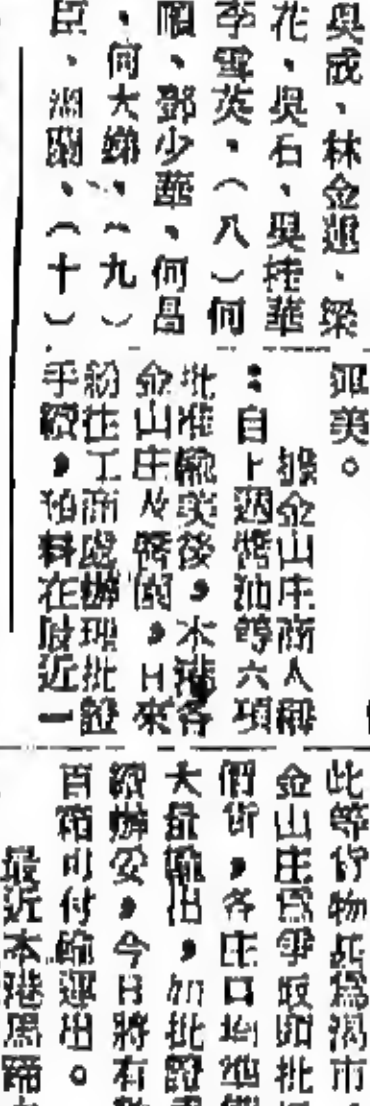 吳成、林金運、梁
花、吳石、吳桂華
李雪英、（八）何
順、鄧少華、何昌
、何大綿、（九）
、（十）
運美。
據金山庄商人稱
：自上週醬油等六項
批准輸美後，本港各
金山庄及醬園，日來
紛往工商處辦理批證
手續，預料在最近一
此等貨物兵為渴市
金山庄為爭取
價貨，各庄口均準備
大量輸出，如批證手
續辦妥，今日將有數
百箱可付輪運出。
最近本港馬蹄